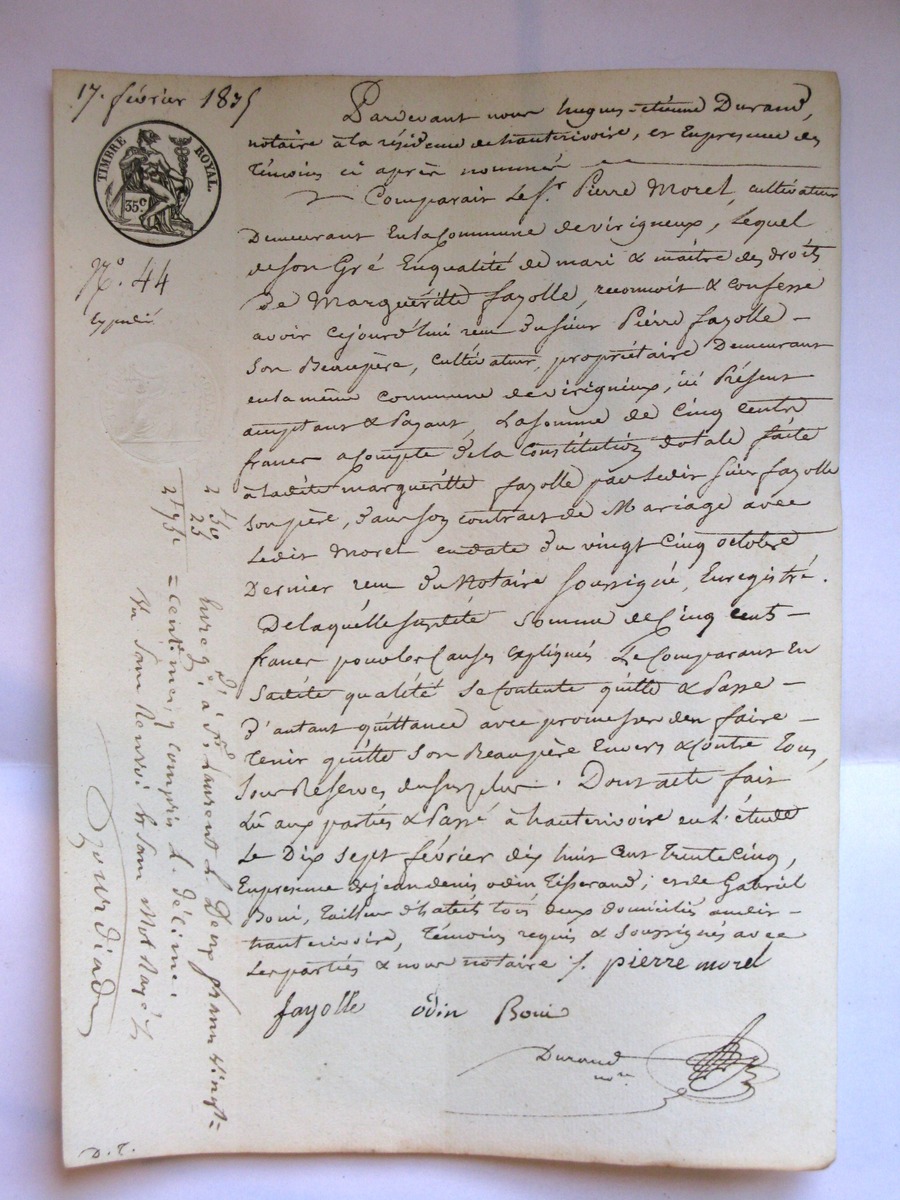 17. février 1835
TIMBRE ROYAL.
35c
N.o 44
Pardevant nous hugues-étienne Durand,
notaire à la résidence de hauterivoire, et En presence des
Témoins ci après nommés
Comparait Le Sr. Pierre Morel, cultivateur
Demeurant En la Commune de virigneux, Lequel
de son Gré En qualité de mari & maître des droits
De Marguéritte fayolle, reconnoit & confesse
avoir cejourd'hui reçu du sieur Pierre fayolle –
Son Beaupère, cultivateur, propriétaire Demeurant
en la même commune de virigneux, ici Présent
acceptant & Payant, La somme de Cinq cents
francs acompte de la Constitution dotale faite
à la dite marguéritte fayolle par ledit sieur fayolle
son père, dans son contract de Mariage avec
Ledit Morel en date du vingt cinq octobre
Dernier reçu du Notaire soussigné, Enregistré.
De laquelle susdite somme de Cinq cents –
francs pour les Causes Expliqués. Le Comparant En
Sadite qualité Se Contente quitte & Passe –
D'autant quittance avec promesse d'en faire –
Tenir quitte Son Beaupère Envers & Contre Tous,
Sous Réserves du surplus. Dont acte fait
Lu aux parties & Passé à hauterivoire en l'étude
Le Dix sept février dix huit Cent Trente Cinq,
En presence de jean denis odin Tisserand, et de Gabriel
Boni, Tailleur d'habits tous deux domiciliés audit –
hauterivoire, Témoins requis & soussignés avec
Les parties & nous notaire ./. pierre morel
fayolle odin Boni
Durand
nre
2 f
50
25
Enreg. à St. Laurent L. Deux francs vingt=
=centimes y compris L. décime.
Jourdiad
D. T.